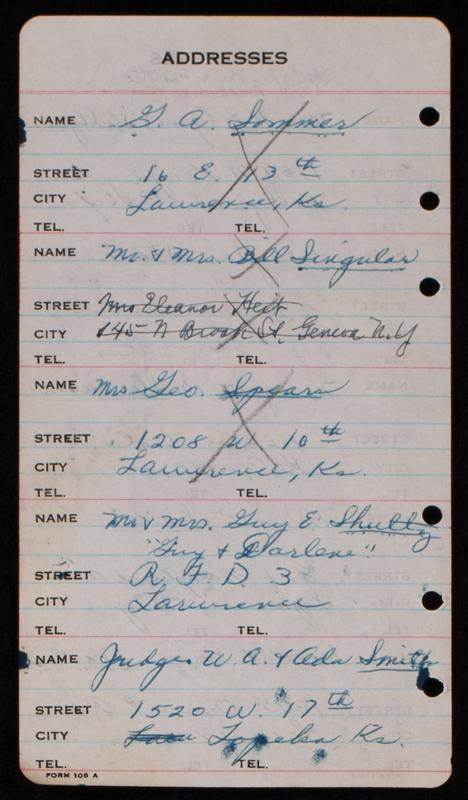 ADDRESSES
NAME G. A. Sommer
STREET 16 E. 13th
CITY Lawrence, Ks.
TEL. TEL.
NAME Mr. & Mrs. Bill Singular
STREET Mrs Eleanor Heit
CITY 145 N Brook St. Geneva N.Y
TEL. TEL.
NAME Mrs Geo. Spears
STREET 1208 W. 10th
CITY Lawrence, Ks.
TEL. TEL.
NAME Mr & Mrs. Guy E. Shultz
"Guy & Darlene"
STREET R. F. D. 3
CITY Lawrence
TEL. TEL.
NAME Judge W. A. & Ada Smith
STREET 1520 W. 17th
CITY Law Topeka, Ks.
TEL. TEL.
FORM 108 A